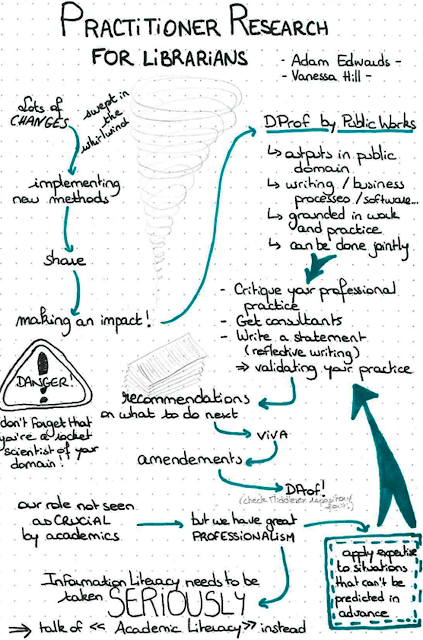 PRACTITIONER RESEARCH
FOR LIBRARIANS
- Adam Edwards -
- Vanessa Hill -
Lots of
CHANGES
swept in
the
whirlwind
implementing
new methods
share
making an impact!
DProf by Public Works
↳ outputs in public
domain
↳ writing / business
processes / software...
↳ grounded in work
and practice
↳ can be done jointly
- Critique your professional
practice
- Get consultants
- Write a statement
(reflective writing)
⇒ validating your practice
DANGER!
don't forget that
you're a rocket
scientist of your
domain!
recommendations
on what to do next
VIVA
amendements
DProf!
(check Middlesex repository
our role not seen
as CRUCIAL
by academics
but we have great
PROFESSIONALISM
apply expertise
to situations
that can't be
predicted in
advance
Information Literacy needs to be
taken SERIOUSLY
⇒ talk of << Academic Literacy >> instead